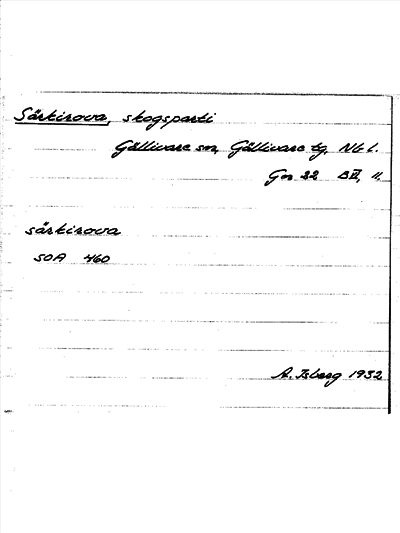 Särkirova, skogsparti
Gällivare sn, Gällivare tg. Nb l.
Gn 22 BII, 11.
särkirova
SOA 460
A. Isberg 1932